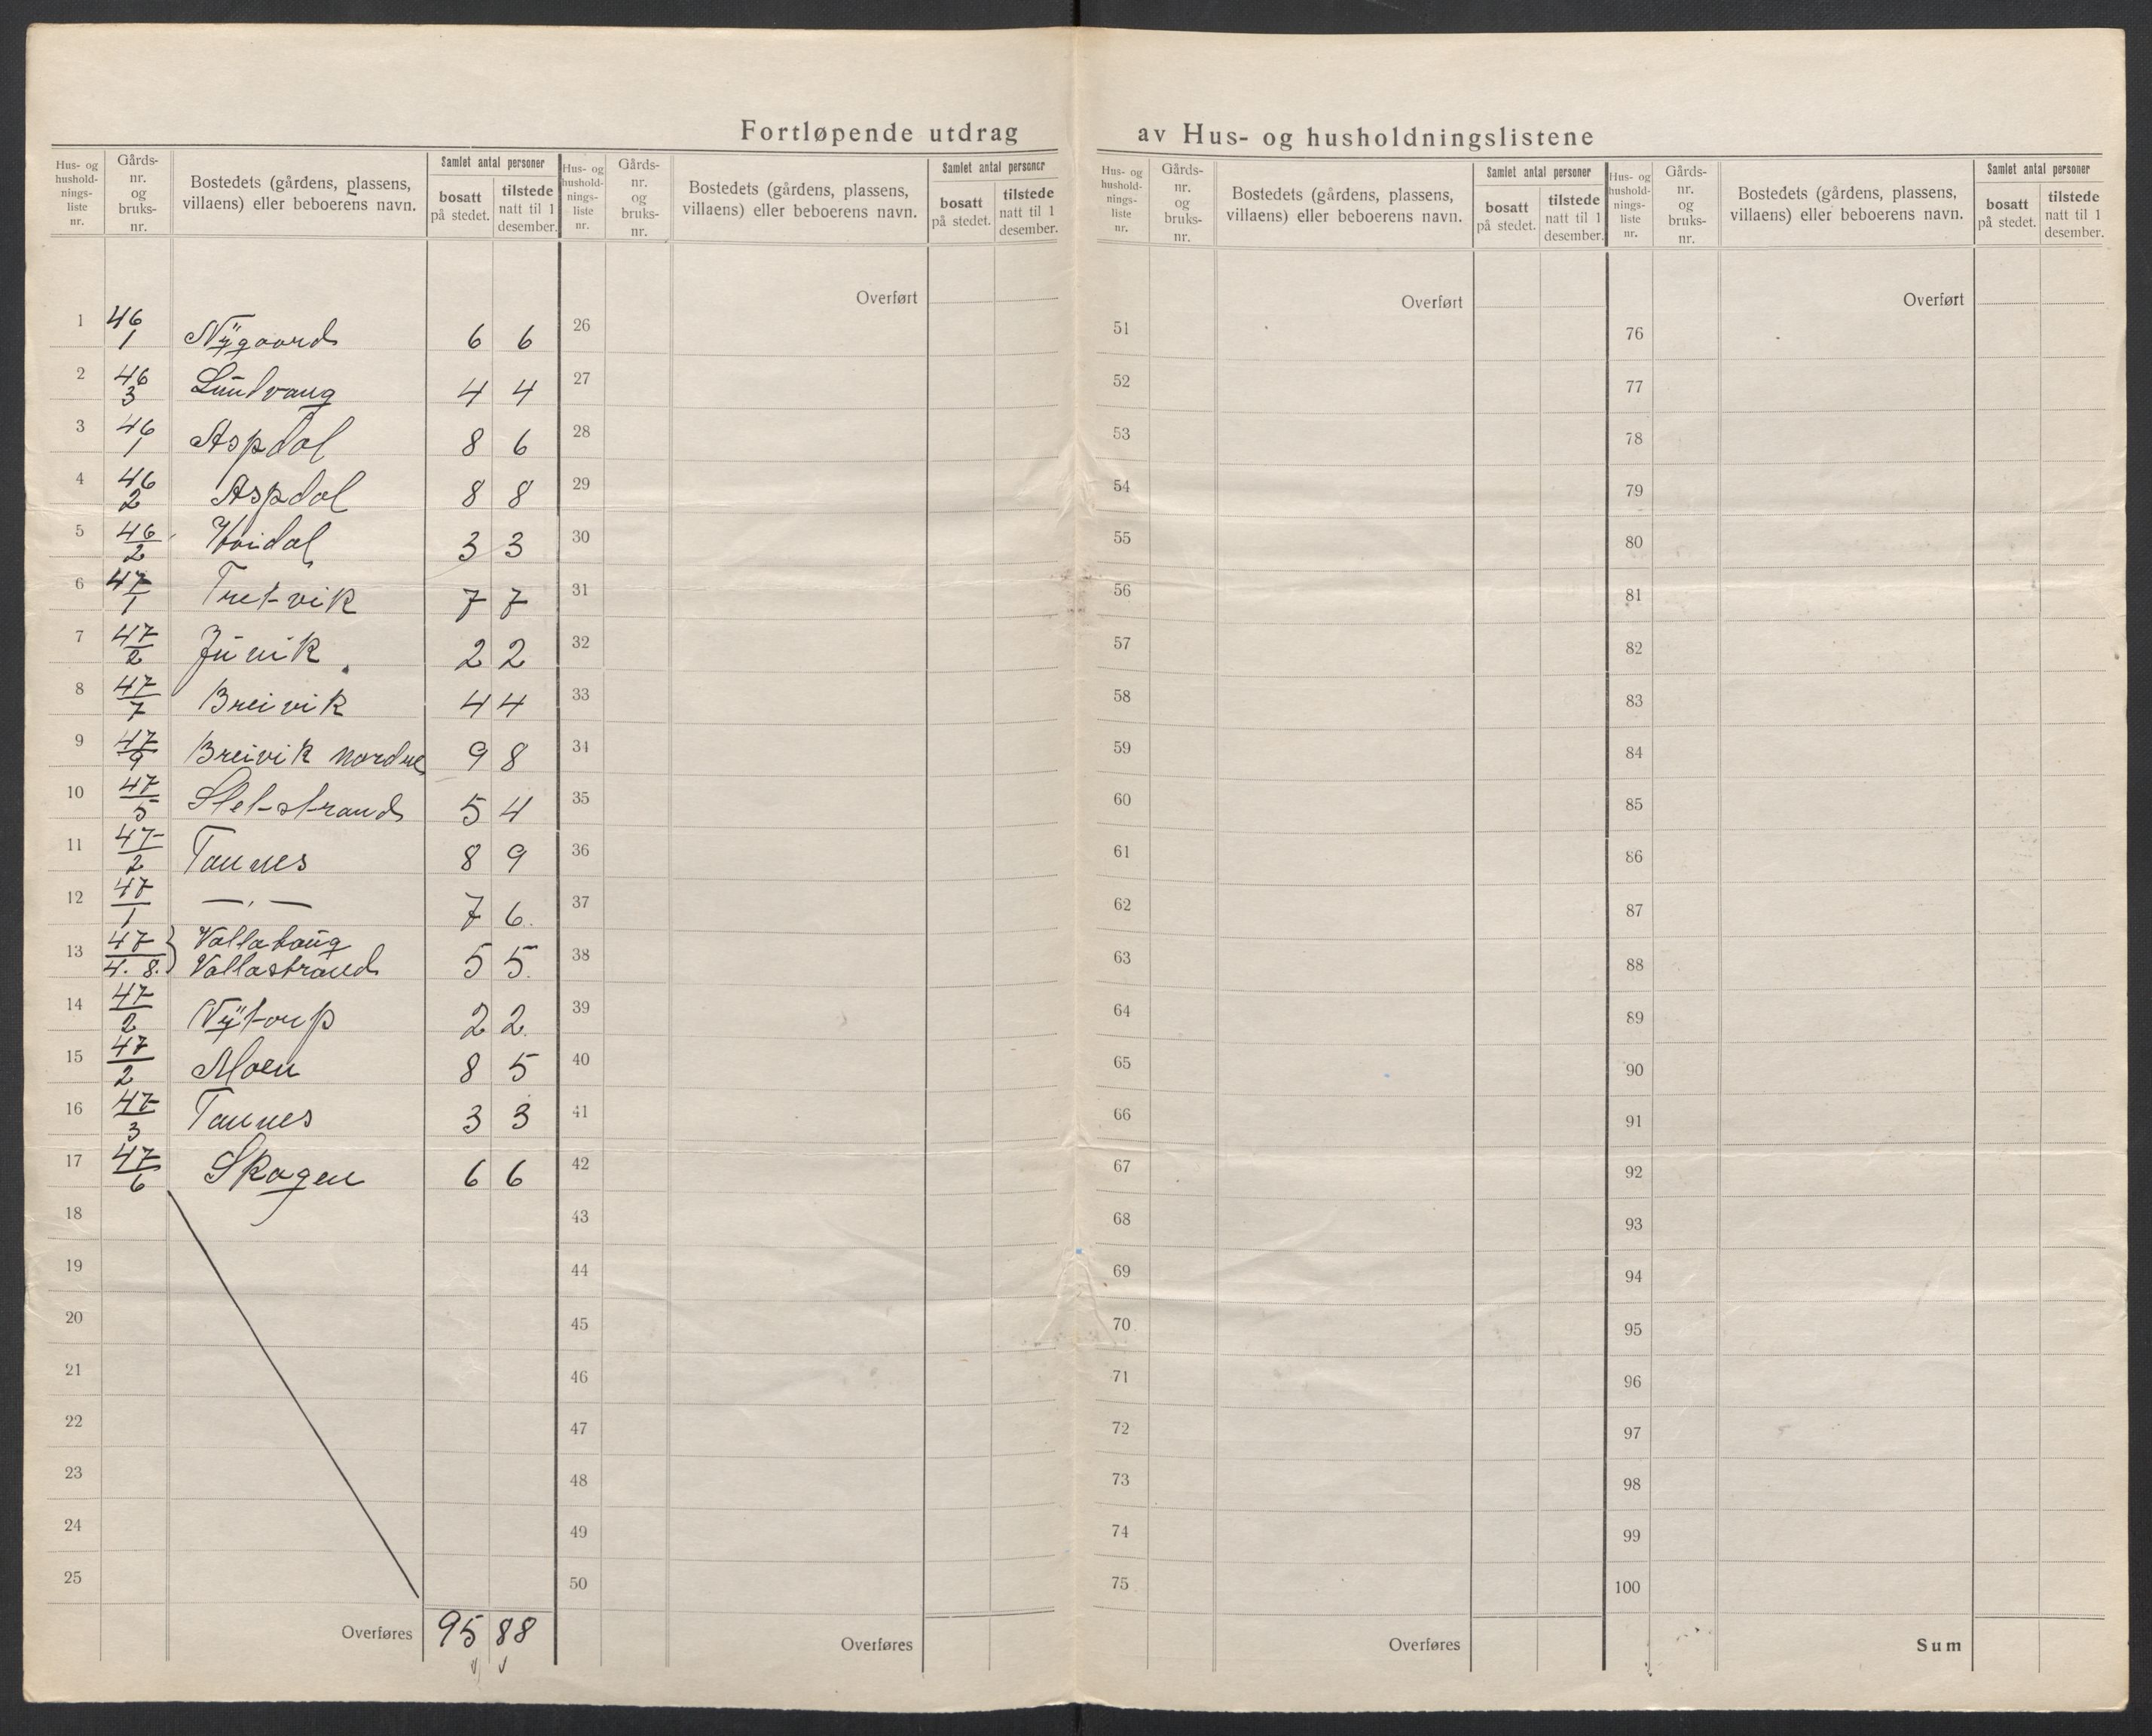 Fortløpende utdrag av Hus- og husholdningslistene
Hus- og hushold-nings-liste nr. | Gårds-nr. og bruks-nr. | Bostedets (gårdens, plassens, villaens) eller beboerens navn. | Samlet antal personer | bosatt på stedet. | tilstede natt til 1 desember.
Hus- og hushold-nings-liste nr. | Gårds-nr. og bruks-nr. | Bostedets (gårdens, plassens, villaens) eller beboerens navn. | Samlet antal personer | bosatt på stedet. | tilstede natt til 1 desember.
Hus- og hushold-nings-liste nr. | Gårds-nr. og bruks-nr. | Bostedets (gårdens, plassens, villaens) eller beboerens navn. | Samlet antal personer | bosatt på stedet. | tilstede natt til 1 desember.
Hus- og hushold-nings-liste nr. | Gårds-nr. og bruks-nr. | Bostedets (gårdens, plassens, villaens) eller beboerens navn. | Samlet antal personer | bosatt på stedet. | tilstede natt til 1 desember.
1 46/1 Nÿgaard 6 6
2 46/3 Lundvang 4 4
3 46/1 Aspdal 8 6
4 46/2 Aspdal 8 8
5 46/2 3 3
6 47/1 Tretvik 7 7
7 47/2 Juvik 2 2
8 47/7 Breivik 4 4
9 47/9 Breivik nordre 9 8
10 47/5 Sletstrand 5 4
11 47/2 Tannes 8 9
12 47/1 — . — 7 6.
13 47/4. 8. } Vallahaug
Vallastrand 5 5.
14 47/2 Nÿtorp 2 2.
15 47/2 Moen 8 5
16 47/3 Tannes 3 3
17 47/6 Skogen 6 6
18
19
20
21
22
23
24
25
Overføres 95 88
Overført
26
27
28
29
30
31
32
33
34
35
36
37
38
39
40
41
42
43
44
45
46
47
48
49
50
Overføres
Overført
51
52
53
54
55
56
57
58
59
60
61
62
63
64
65
66
67
68
69
70
71
72
73
74
75
Overføres
Overført
76
77
78
79
80
81
82
83
84
85
86
87
88
89
90
91
92
93
94
95
96
97
98
99
100
Sum